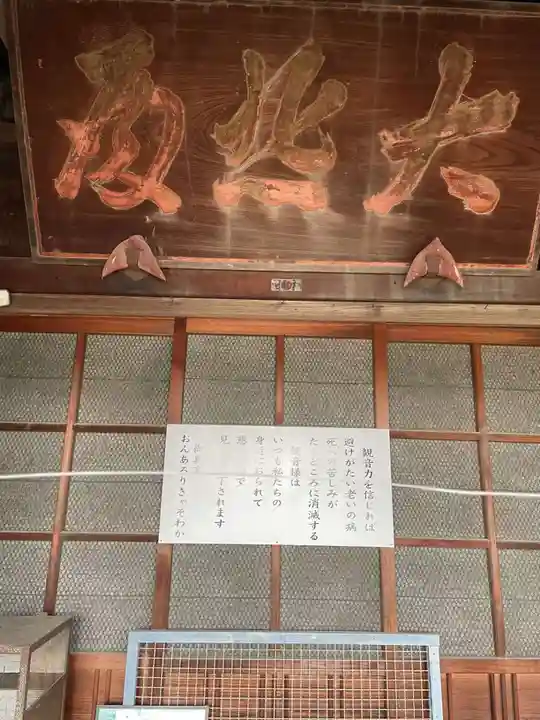 大悲殿
観音力を信じれば
避けがたい老いの病
死の苦しみが
たちどころに消滅する
観音様は
いつも私たちの
身近におられて
慈
で
見
て下されます
おんあろりきゃそわか